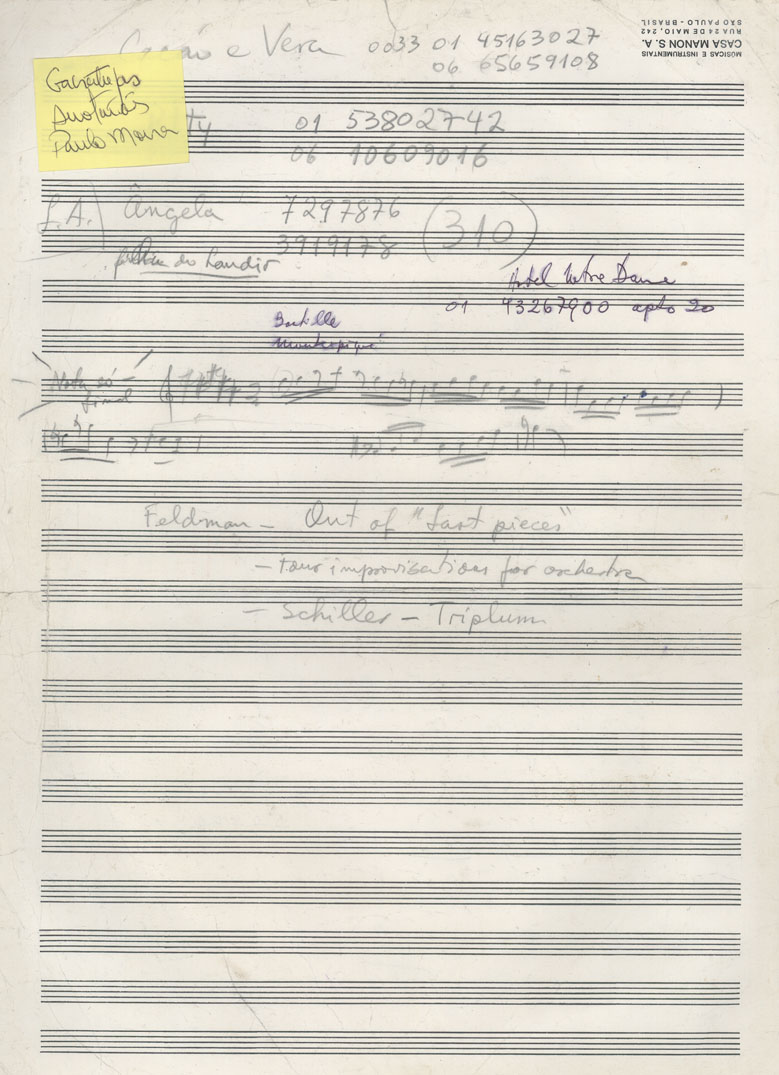 e Vera 0033 01 45163027
06 65659108
MÚSICAS E INSTRUMENTAIS
CASA MANON S. A.
RUA 24 DE MAIO, 242
SÃO PAULO - BRASIL
Paulo Moura
ty 01 53802742
06 10609016
L.A. Ângela 7297876 (310)
3919178
do Landir
Hotel Notre Dame
01 43267900 apto 20
Bastille
Nota só -
final
Feldman - Out of "Last pieces"
- four improvisations for orchestra
- Schiller - Triplum